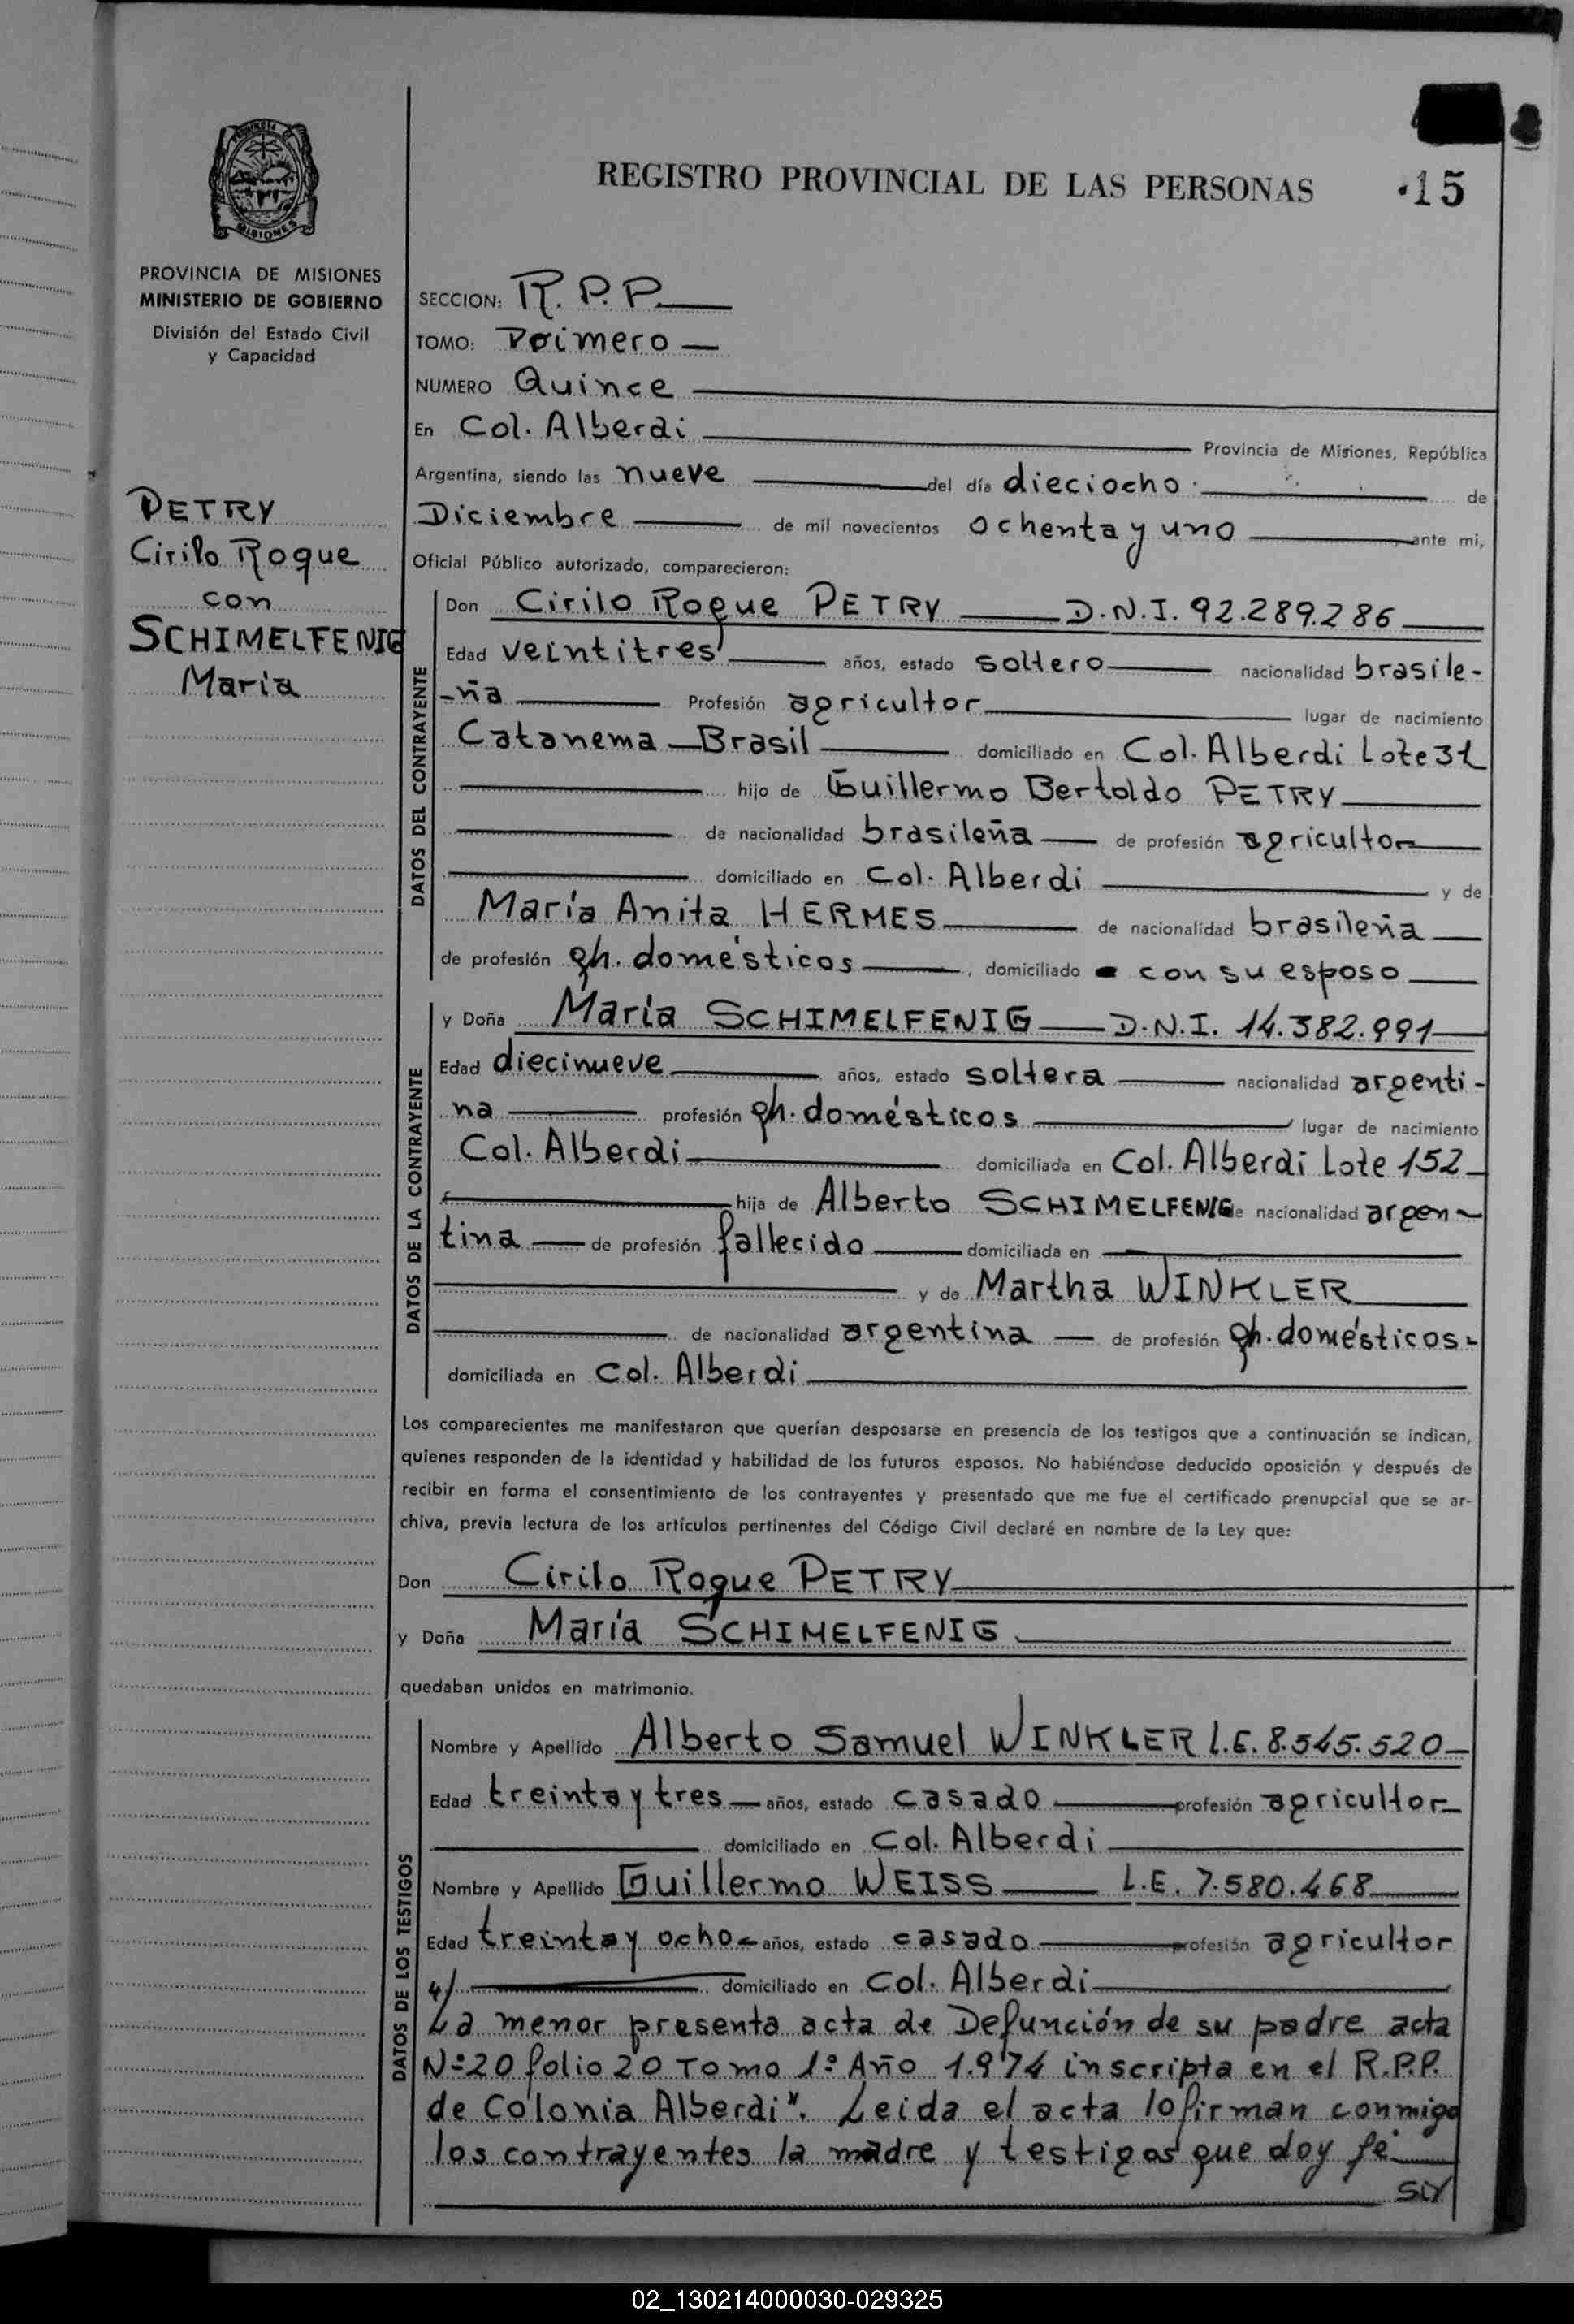 REGISTRO PROVINCIAL DE LAS PERSONAS
·15
PROVINCIA DE MISIONES
MINISTERIO DE GOBIERNO
División del Estado Civil
y Capacidad
PETRY
Cirilo Roque
con
SCHIMELFENIG
Maria
SECCION: R.P.P.
TOMO: Primero
NUMERO Quince
En Col. Alberdi Provincia de Misiones, República
Argentina, siendo las nueve del día dieciocho de
Diciembre de mil novecientos ochenta y uno ante mi,
Oficial Público autorizado, comparecieron:
DATOS DEL CONTRAYENTE
Don Cirilo Roque PETRY D.N.I. 92.289.286
Edad veintitres años, estado soltero nacionalidad brasile-
-ña Profesión agricultor lugar de nacimiento
Catanema - Brasil domiciliado en Col. Alberdi Lote 31
hijo de Guillermo Bertoldo PETRY
de nacionalidad brasileña de profesión agricultor
domiciliado en Col. Alberdi y de
María Anita HERMES de nacionalidad brasileña
de profesión qh. domésticos, domiciliado con su esposo
DATOS DE LA CONTRAYENTE
y Doña María SCHIMELFENIG D.N.I. 14.382.991
Edad diecinueve años, estado soltera nacionalidad argenti-
na profesión qh. domésticos lugar de nacimiento
Col. Alberdi domiciliada en Col. Alberdi Lote 152
hija de Alberto SCHIMELFENIG de nacionalidad argen-
tina de profesión fallecido domiciliada en
y de Martha WINKLER
de nacionalidad argentina de profesión qh. domésticos
domiciliada en Col. Alberdi
Los comparecientes me manifestaron que querían desposarse en presencia de los testigos que a continuación se indican,
quienes responden de la identidad y habilidad de los futuros esposos. No habiéndose deducido oposición y después de
recibir en forma el consentimiento de los contrayentes y presentado que me fue el certificado prenupcial que se ar-
chiva, previa lectura de los artículos pertinentes del Código Civil declaré en nombre de la Ley que:
Don Cirilo Roque PETRY
y Doña María SCHIMELFENIG
quedaban unidos en matrimonio.
DATOS DE LOS TESTIGOS
Nombre y Apellido Alberto Samuel WINKLER L.E. 8.545.520
Edad treinta y tres años, estado casado profesión agricultor
domiciliado en Col. Alberdi
Nombre y Apellido Guillermo WEISS L.E. 7.580.468
Edad treinta y ocho años, estado casado profesión agricultor
domiciliado en Col. Alberdi
La menor presenta acta de Defunción de su padre acta
Nº 20 folio 20 Tomo 1º Año 1.974 inscripta en el R.P.P.
de Colonia Alberdi". Leida el acta lo firman conmigo
los contrayentes la madre y testigos que doy fé
02_130214000030-029325